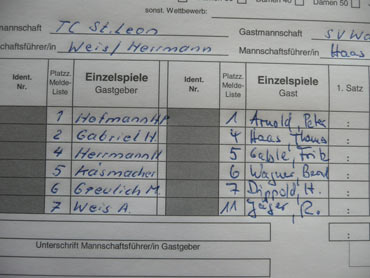 Damen 30 Damen 40 Damen 50
sonst. Wettbewerb:
mannschaft TC St. Leon Gastmannschaft SV Wa
schaftsführer/in Weis/Herrmann Mannschaftsführer/in Haas
Ident. Nr. Platzz. Melde- Liste Einzelspiele Gastgeber Ident. Nr. Platzz. Melde- Liste Einzelspiele Gast 1. Satz
1 Hofmann H.P 1 Arnold, Peter :
2 Gabriel H. 4 Haas, Thomas :
4 Herrmann H 5 Gable, Fritz :
5 Käsmacher 6 Wagner, Bernd :
6 Greulich M. 7 Dippold, H. :
7 Weis A. 11 Jäger, R. :
Unterschrift Mannschaftsführer/in Gastgeber